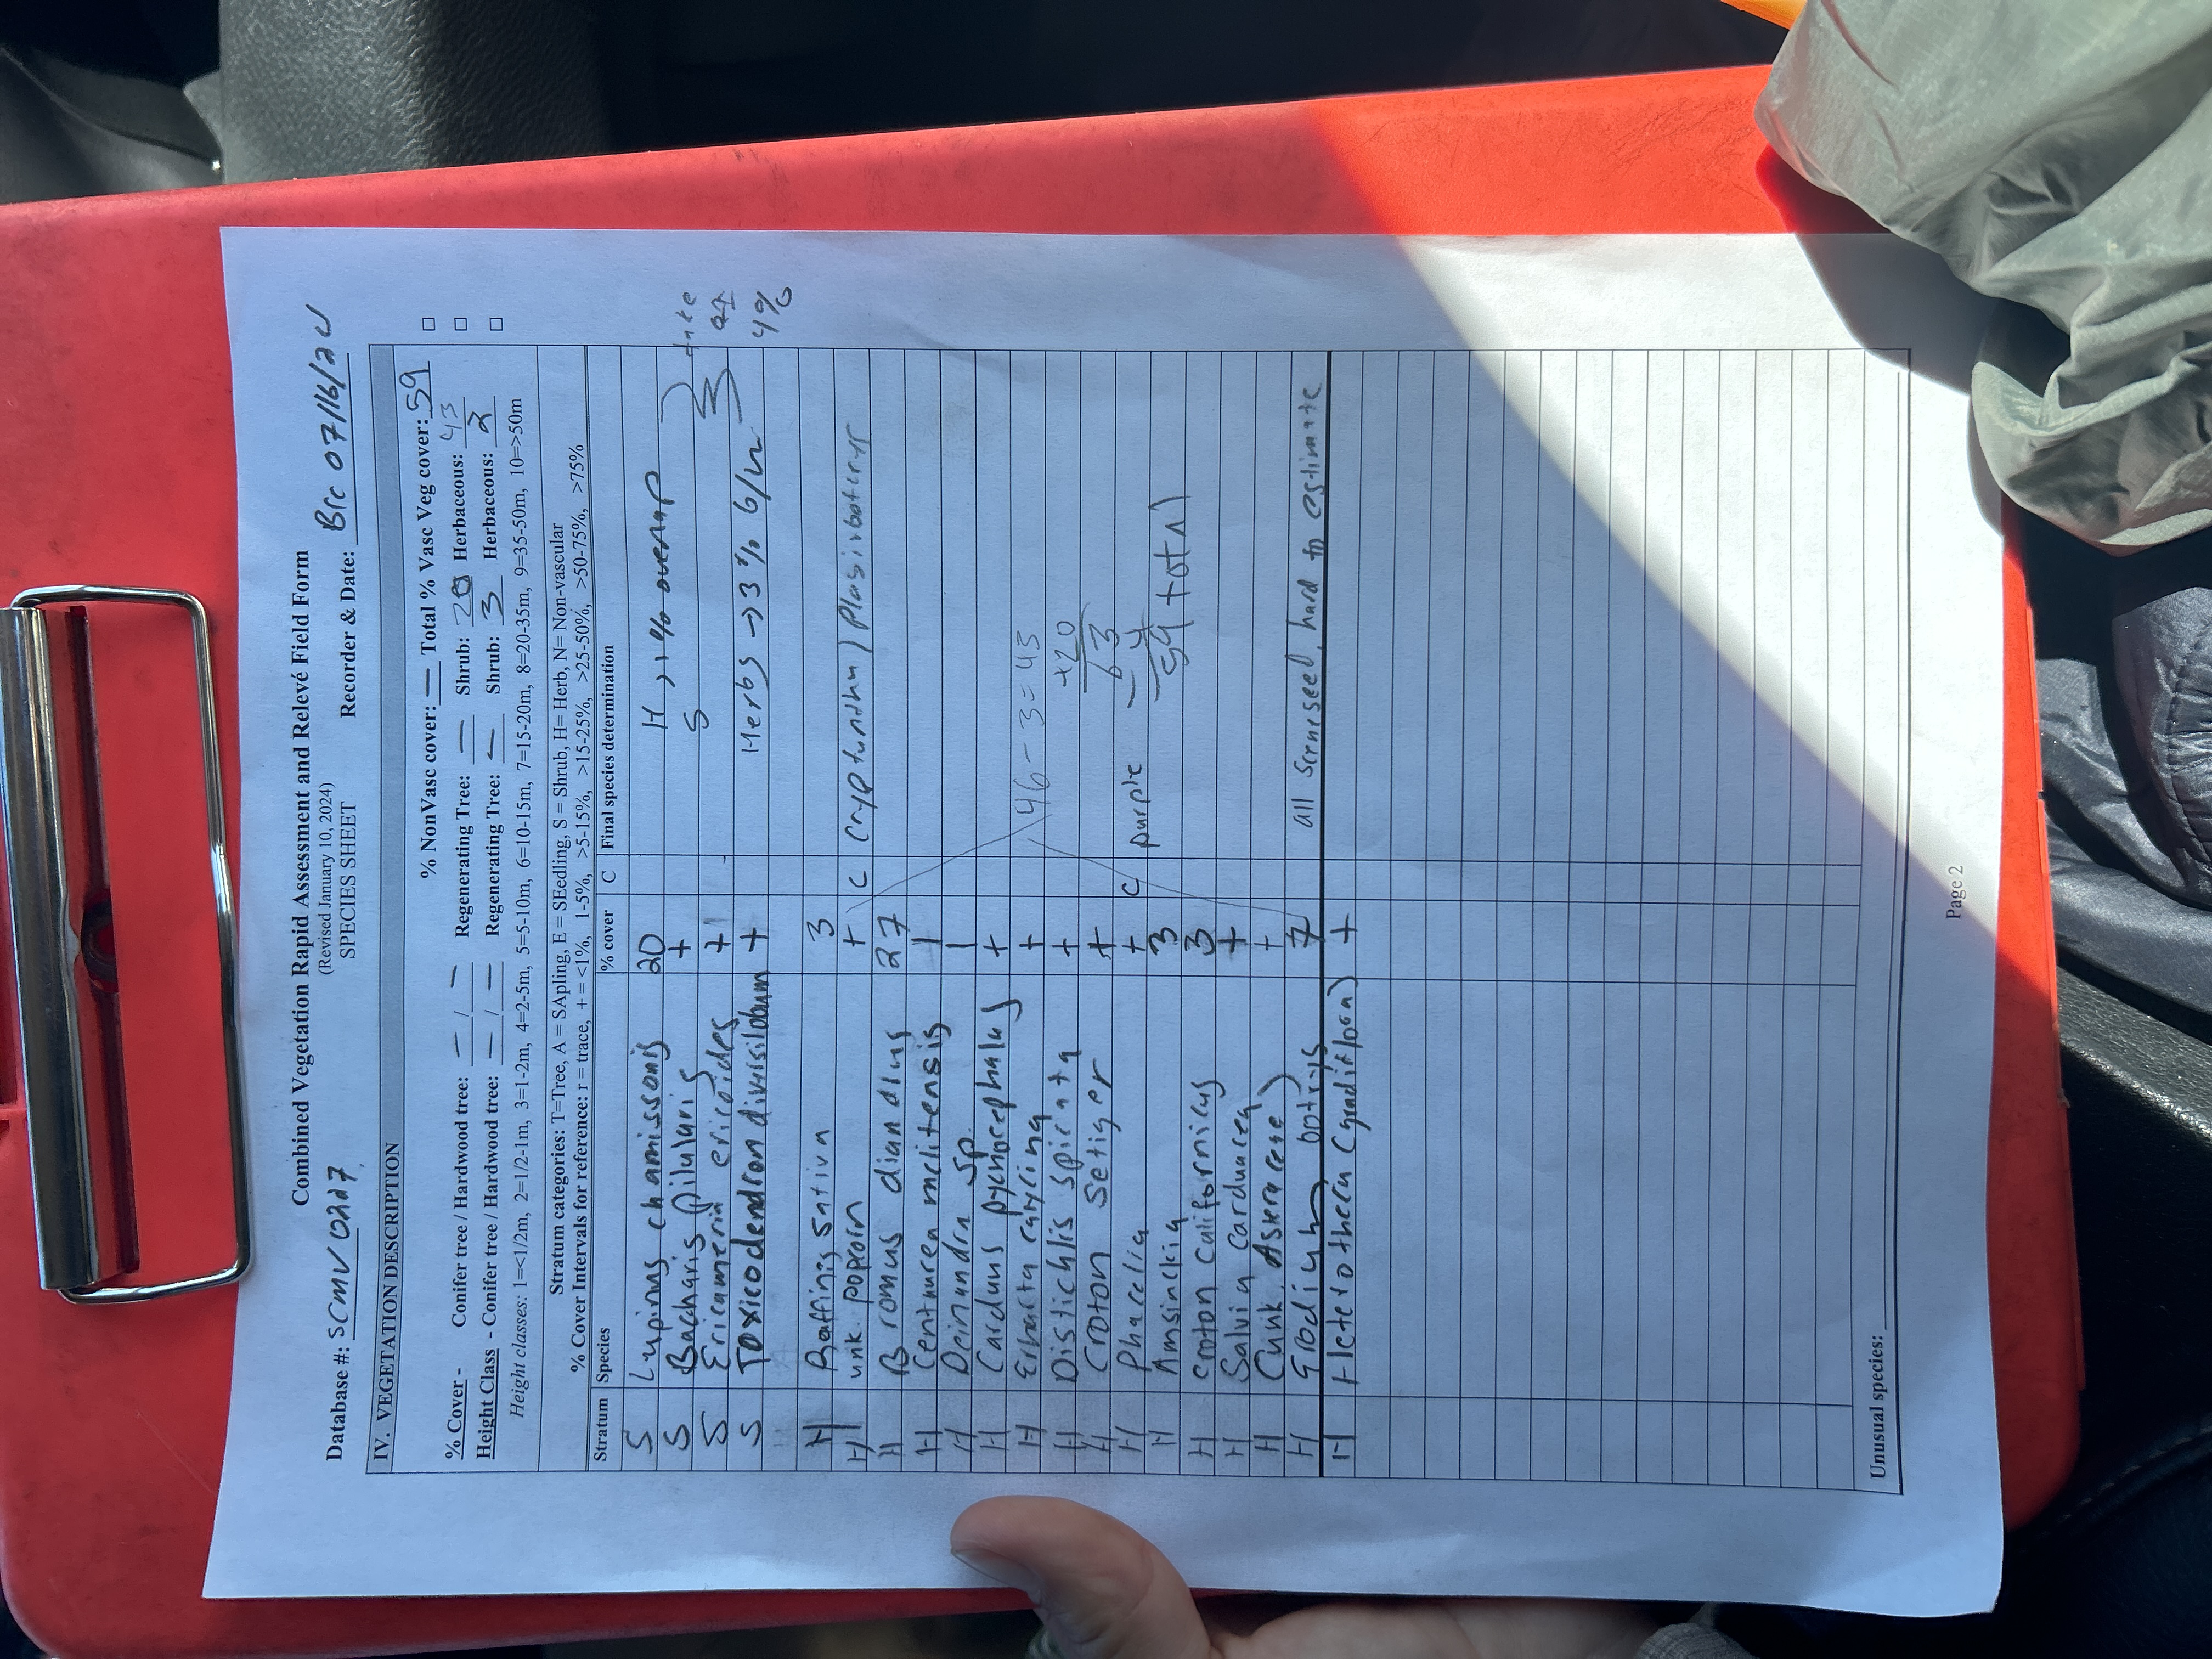 Combined Vegetation Rapid Assessment and Relevé Field Form
(Revised January 10, 2024)
SPECIES SHEET
Database #: SCMV0227 Recorder & Date: 07/16/24
IV. VEGETATION DESCRIPTION
% NonVasc cover: — Total % Vasc Veg cover: 59
% Cover - Conifer tree / Hardwood tree: — / — Regenerating Tree: — Shrub: 20 Herbaceous: 43
Height Class - Conifer tree / Hardwood tree: — / — Regenerating Tree: — Shrub: 3 Herbaceous: 2
Height classes: 1=<1/2m, 2=1/2-1m, 3=1-2m, 4=2-5m, 5=5-10m, 6=10-15m, 7=15-20m, 8=20-35m, 9=35-50m, 10=>50m
Stratum categories: T=Tree, A = SApling, E = SEedling, S = Shrub, H= Herb, N= Non-vascular
% Cover Intervals for reference: r = trace, + = <1%, 1-5%, >5-15%, >15-25%, >25-50%, >50-75%, >75%
Stratum Species % cover C Final species determination
S Lupinus chamissonis 20 H >1% overlap
S Baccharis pilularis + S
S Ericameria ericoides +
S Toxicodendron diversilobum + Herbs → 3% b/w
4%
H sativa 3
H unk. popcorn + C
H Bromus diandrus 27
H Centaurea melitensis 1
H Deinandra sp. 1
H Carduus pycnocephalus +
H Ehrharta calycina + 46 - 3 = 43
H Distichlis spicata + +20
H Croton setiger + 63
H Phacelia + C - 4
H Amsinckia 3 purple 59 total
H croton californicus 3
H Salvia carduacea +
H (unk. Asteraceae) +
H Erodium botrys 7 all scensced, hard to estimate
H Heterotheca (grandiflora) +
Unusual species:
Page 2